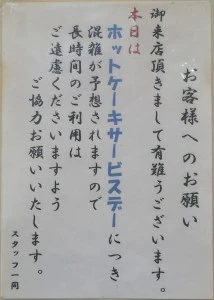 お客様へのお願い
御来店頂きまして有難うございます。
本日は
ホットケーキサービスデーにつき
混雑が予想されますので
長時間のご利用は
ご遠慮くださいますよう
ご協力お願いいたします。
スタッフ一同